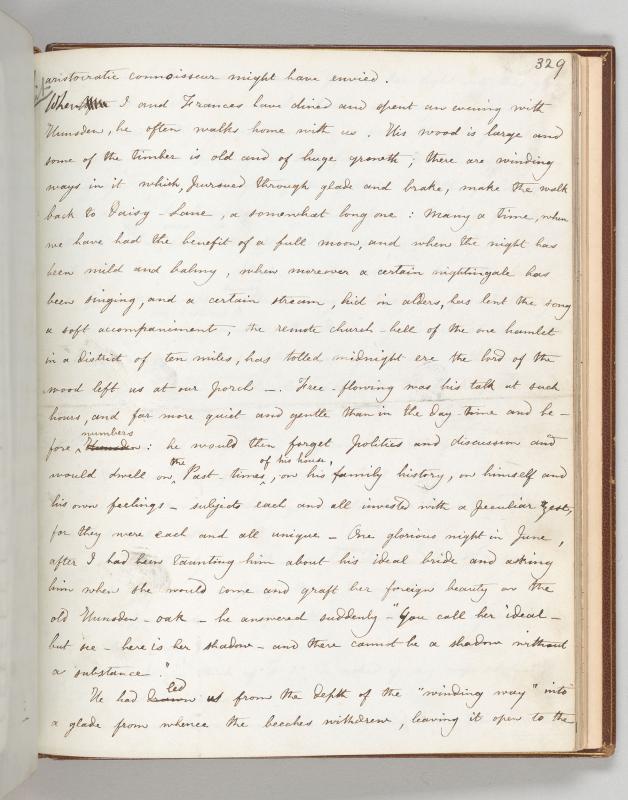 329
aristocratic connoisseur might have envied.
When I and Frances have dined and spent an evening with
Hunsden, he often walks home with us. His wood is large and
some of the timber is old and of huge growth; there are winding
ways in it which, pursued through glade and brake, make the walk
back to Daisy-Lane, a somewhat long one: Many a time, when
we have had the benefit of a full moon, and when the night has
been mild and balmy, when moreover a certain nightingale has
been singing, and a certain stream, hid in alders, has lent the song
a soft accompaniment, the remote church-bell of the one hamlet
in a district of ten miles, has tolled midnight ere the lord of the
wood left us at our porch —. Free-flowing was his talk at such
hours, and far more quiet and gentle than in the day-time and be-
numbers
fore Hunsden: he would then forget politics and discussion and
the of his house,
would dwell on Past-times, on his family history, on himself and
his own feelings – subjects each and all invested with a peculiar zest,
for they were each and all unique – One glorious night in June,
after I had been taunting him about his ideal bride and asking
him when she would come and graft her foreign beauty on the
old Hunsden-oak – he answered suddenly – "You call her ideal –
but see – here is her shadow – and there cannot be a shadow without
a substance."
led
He had drawn us from the depth of the "winding way" into
a glade from whence the beeches withdrew, leaving it open to the